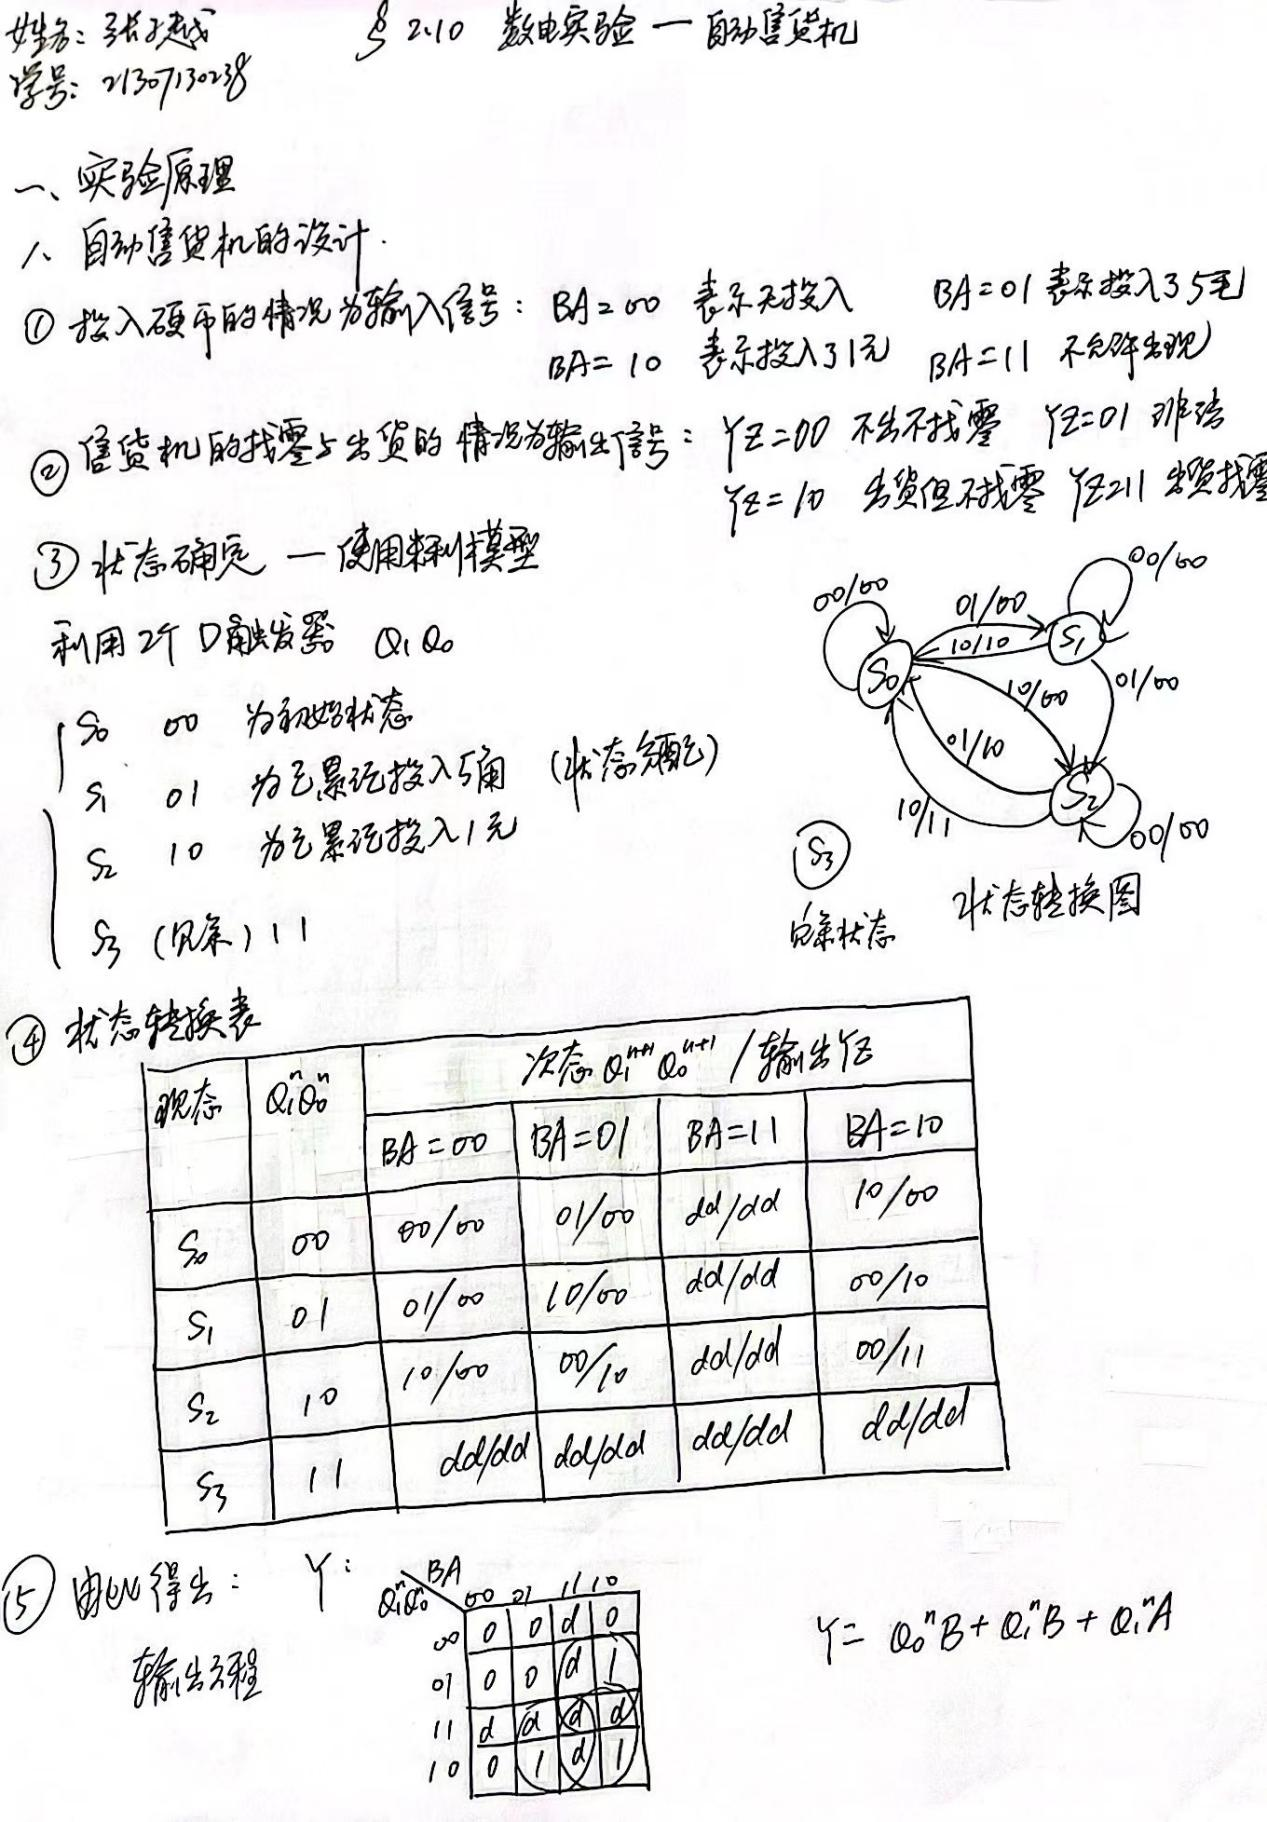 姓名：张子越 § 2.10 数电实验 — 自动售货机
学号：21307130238
一、实验原理
1、自动售货机的设计.
① 投入硬币的情况为输入信号：BA=00 表示无投入 BA=01 表示投入了5毛
BA=10 表示投入了1元 BA=11 不允许出现
② 售货机的找零与出货的情况为输出信号：YZ=00 不出不找零 YZ=01 非法
YZ=10 出货但不找零 YZ=11 出货找零
③ 状态确定 — 使用米利模型
利用2个D触发器 Q₁Q₀
S₀ 00 为初始状态
S₁ 01 为已累计投入5角 (状态分配)
S₂ 10 为已累计投入1元
S₃ (冗余) 11
00/00
01/00
00/00
S₀
10/10
S₁
10/00
01/00
01/10
10/11
S₂
00/00
S₃
冗余状态 状态转换图
④ 状态转换表
现态 Q₁ⁿQ₀ⁿ 次态 Q₁ⁿ⁺¹ Q₀ⁿ⁺¹ / 输出YZ
BA=00 BA=01 BA=11 BA=10
S₀ 00 00/00 01/00 dd/dd 10/00
S₁ 01 01/00 10/00 dd/dd 00/10
S₂ 10 10/00 00/10 dd/dd 00/11
S₃ 11 dd/dd dd/dd dd/dd dd/dd
⑤ 由 得出： Y：
输出方程
BA
Q₁ⁿQ₀ⁿ 00 01 11 10
00 0 0 d 0
01 0 0 d 1
11 d d d d
10 0 1 d 1
Y = Q₀ⁿB + Q₁ⁿB + Q₁ⁿA